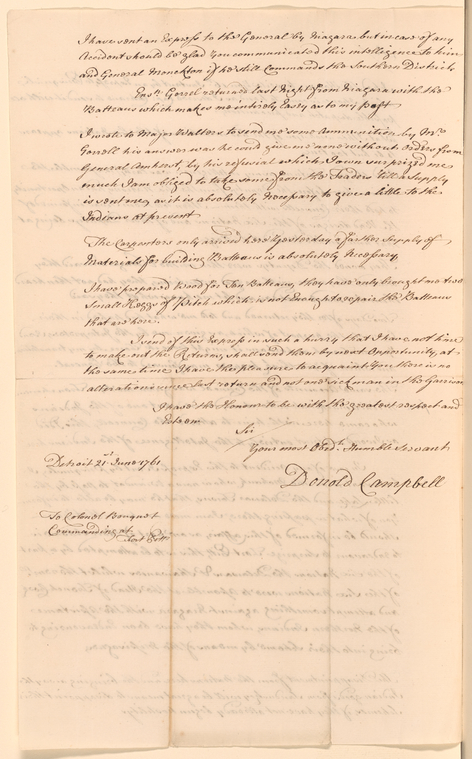 I have sent an Express to the General by Niagara, but in case of any
Accident should be glad you communicated this intelligence to him
and General Monckton if he still Commands the Southern District.
Ens.n Gorrel returned last Night from Niagara with the
Batteaus which makes me intirely Easey as to my post
I wrote to Major Walters to send me some Ammunition by Mr
Gorrell his answer was he could give me none without Orders from
General Amherst, by his refusial which I own surprized me
much I am obliged to take some from the Traders till a Supply
is sent me, as it is absolutely Necessary to give a little to the
Indians at present
The Carpenters only arrived here Yesterday a farther Supply of
Materials for building Batteaus is absolutely Necessary.
I have prepared Wood for Ten Batteaus, they have only brought me two
Small Keggs of Pitch which is not Enough to repair the Batteaus
that are here.
I send of this Express in such a hurry that I have not time
to make out the Returns, shall send them by next Opportunity, at
the same time I have the pleasure to acquaint you there is no
alteration since last return and not one sick man in the Garrison
I have the Honour to be with the greatest respect and
Esteem
Sir
Your most Obed.t Humble Servant
Donald Campbell
Detroit 21st June 1761
To Colonel Bouquet
Commanding at
Fort Pitt